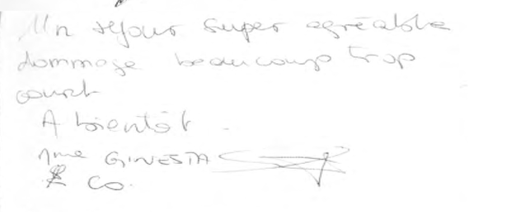 Un séjour super agréable
dommage beaucoup trop
court
A bientôt.
Mme GINESTA
& CO.